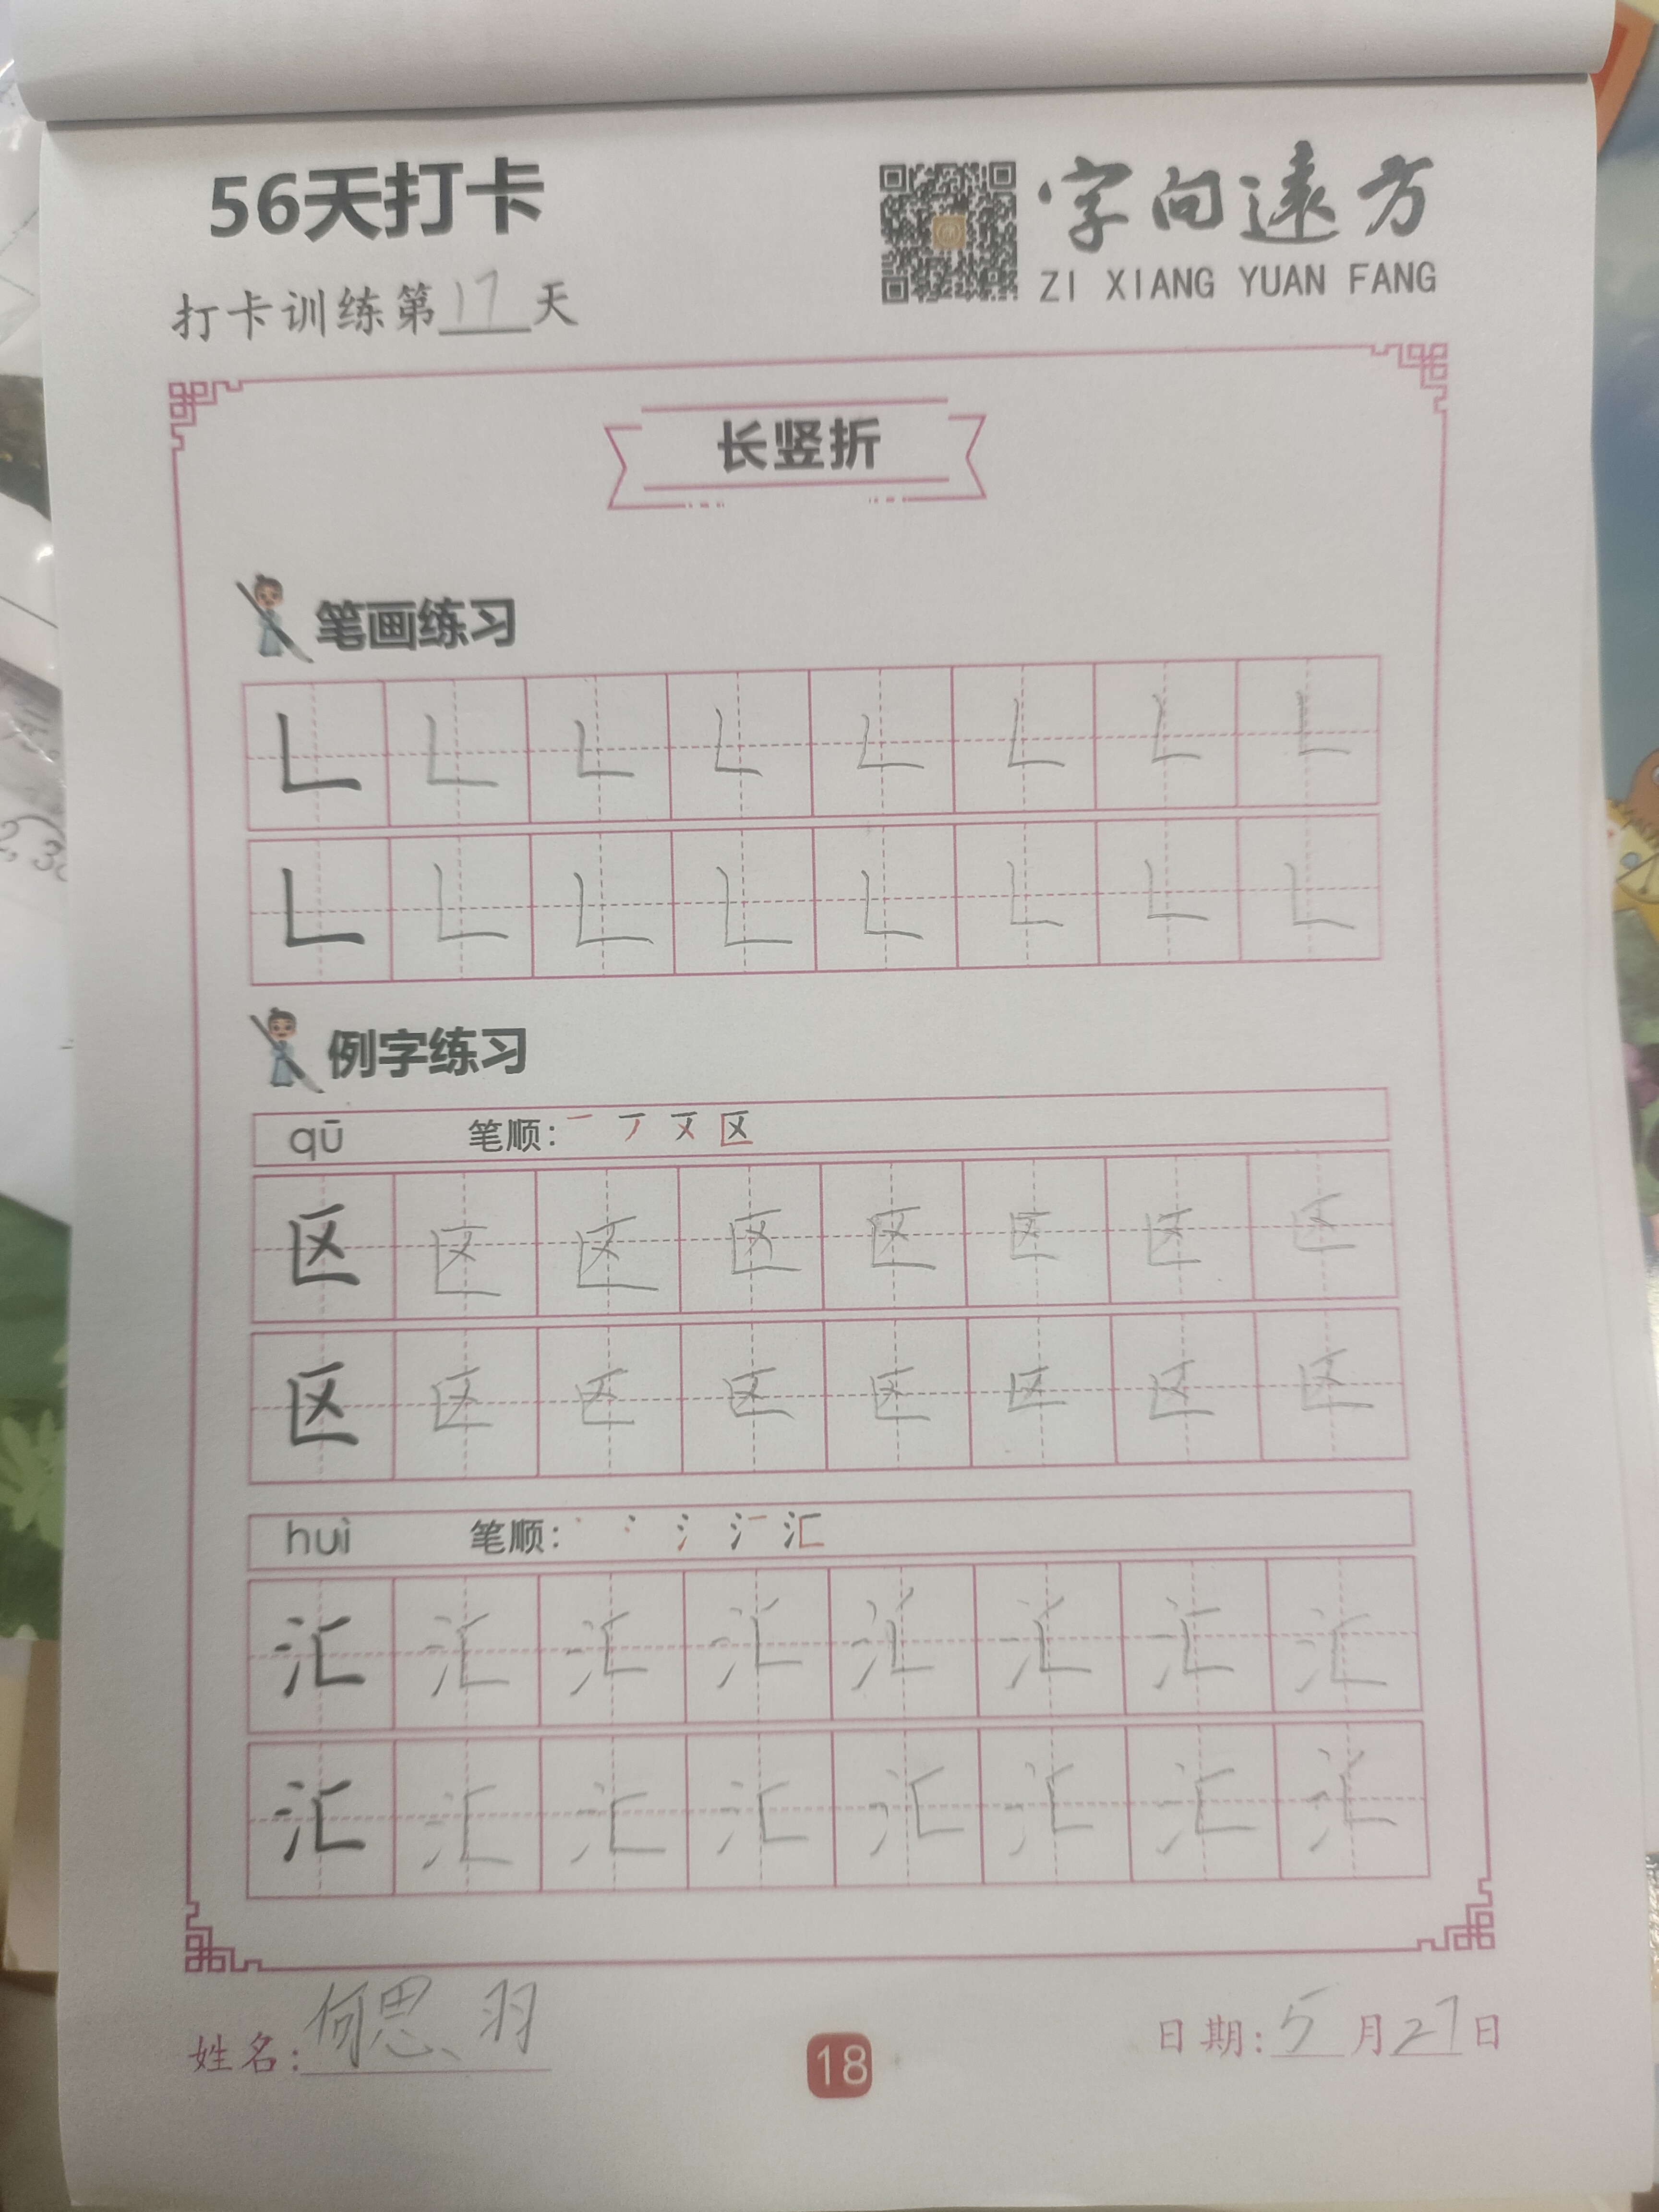 56天打卡
字向遠方
ZI XIANG YUAN FANG
打卡训练第17天
长竖折
笔画练习
𠃊 𠃊 𠃊 𠃊 𠃊 𠃊 𠃊 𠃊
𠃊 𠃊 𠃊 𠃊 𠃊 𠃊 𠃊 𠃊
例字练习
qū 笔顺: 一 丆 区
区 区 区 区 区 区 区 区
区 区 区 区 区 区 区 区
huì 笔顺: 丶 冫 氵 汇
汇 汇 汇 汇 汇 汇 汇 汇
汇 汇 汇 汇 汇 汇 汇 汇
姓名: 何思羽
18
日期: 5月27日